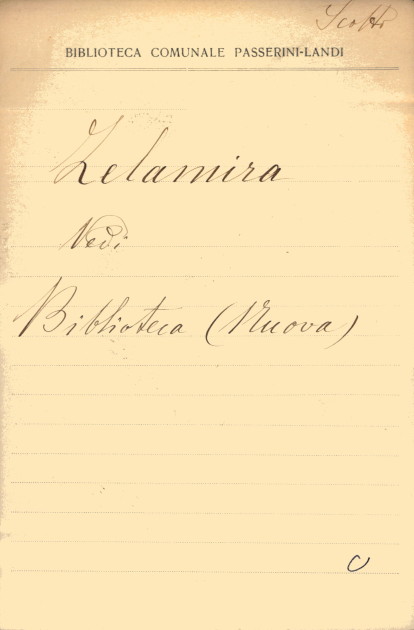 Scotti
BIBLIOTECA COMUNALE PASSERINI-LANDI
Zelamira
Vedi
Biblioteca (Nuova)
C